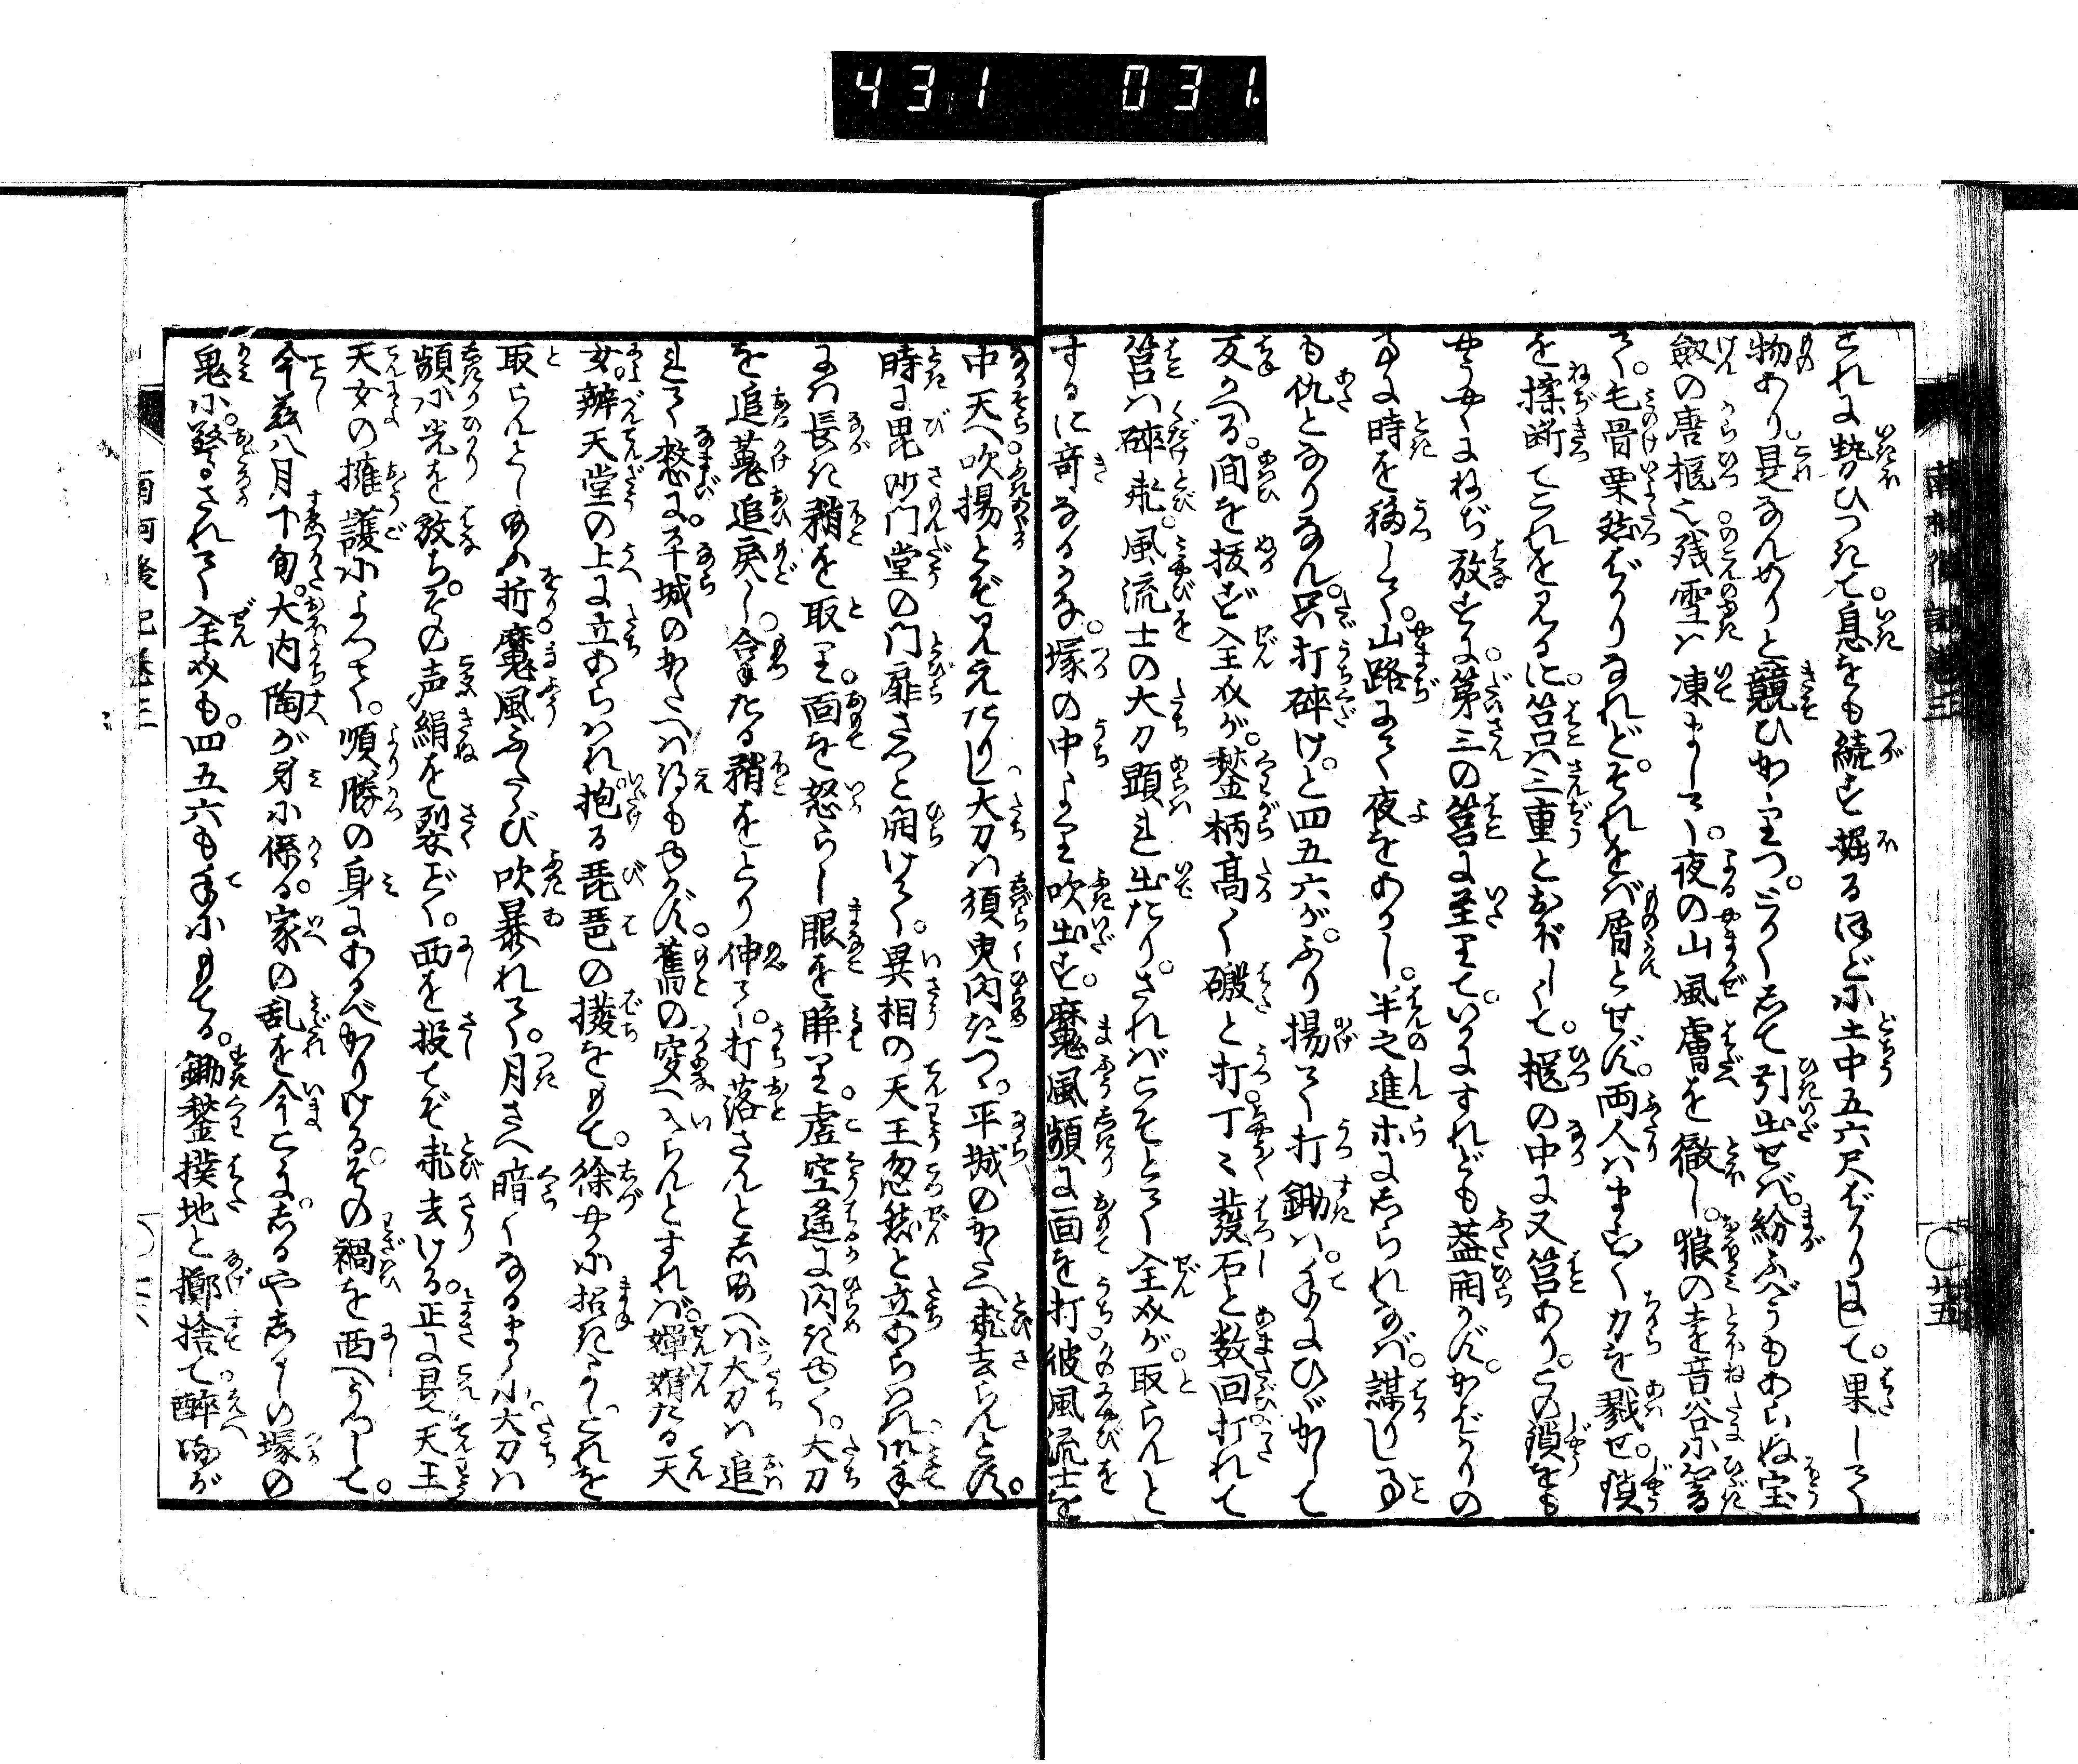 431 031
これに勢ひつきて。息をも続ず堀るほどに土中五六尺ばかりにして。果して
物あり是なんめりと競ひかゝりつ。からくして引出せば。紛ふべうもあらぬ宝
劔の唐櫃也残雪は凍まして。夜の山風膚を徹し。狼の声音谷に響
て。毛骨栗然ばかりなれど。それをば屑とせず。両人はまづ力を戮せ。鎖
を揉断てこれを見るに。筥は三重とおぼしくて。櫃の中に又筥あり。この鎖をも
やうやくにねぢ放すに。第三の筥に至りて。いかにすれども蓋開かず。かばかりの
事に時を移して。山路にて夜をあかし。半之進ホにしられなば。謀りし事
も仇となりなん。只打砕け。と四五六が。ふり揚て打鋤は。手にひゞかして
反かへる。間を抜ず全次が。鍪柄高く礑と打。丁々發石と数回打れて
筥は砕飛。風流士の大刀顕れ出たり。さればこそとて全次が。取らんと
するに奇なるかな。塚の中より吹出す。魔風頻に面を打。彼風流士を
中天へ吹揚とぞ見えたりし大刀は須臾閃きつゝ。平城のかたへ飛去らんとす。
時に毘沙門堂の門扉さつと開けて。異相の天王忽然と立あらはれ御手
には長き鞘を取り。面を怒らし眼を睜り。虚空遙に閃きゆく。大刀
を追蒐追戻し。合たる鞘をとり伸て。打落さんとし給へば大刀は追
れて愁に。平城のかたへは得もゆかず。舊の窒へ入らんとすれば。嬋娟たる天
女。辨天堂の上に立あらはれ。抱る琵琶の撥をもて。徐やかに招きよしこれを
取らんとし給ふ折。魔風ふたゝび吹暴れて。月さへ暗くなるまゝに。大刀は
頻に光を放ち。その声絹を裂ごとく。西を投てぞ飛去ける。正に是天王
天女の擁護によつて。順勝の身にあるべかりける。その禍を西へうつして。
今茲八月下旬。大内陶が身に係る。家の乱を今こゝに。しるや志るしの塚の
鬼に。驚されて全次も。四五六も手にもてる。鋤鍪撲地と擲捨て酔るが